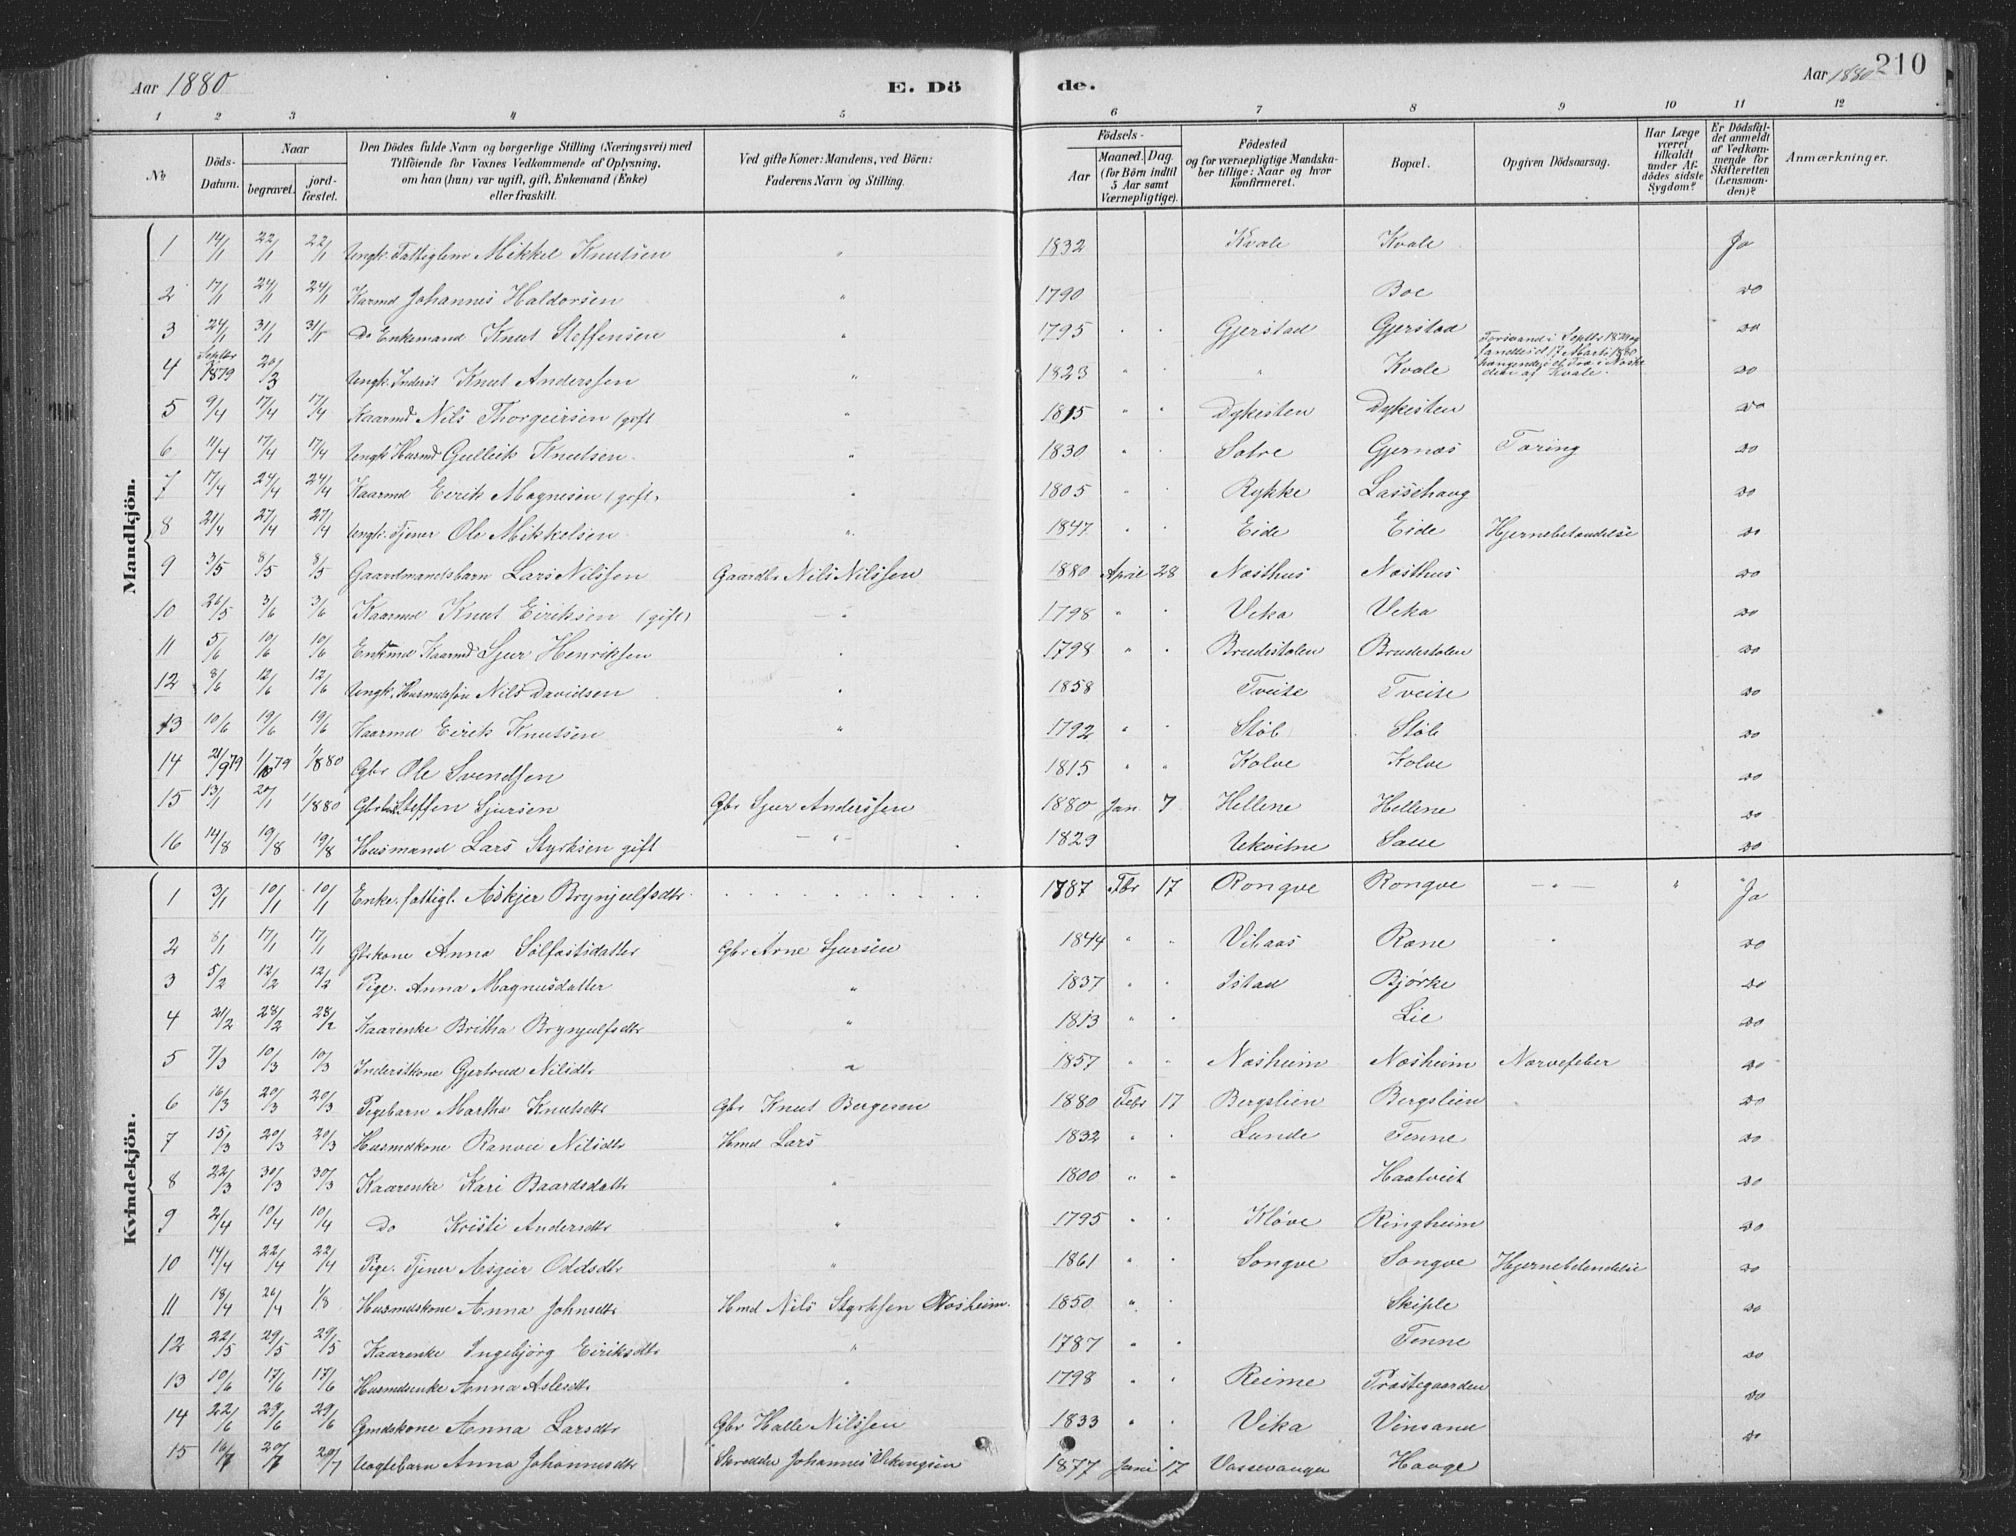 Aar 1880 E. Dö de. Aar 1880 210
1 2 3 4 5 6 7 8 9 10 11 12
No Döds-Datum. Naar begravet. jord-fæstet. Den Dödes fulde Navn og borgerlige Stilling (Næringsvei) med Tilföiende for Voxnes Vedkommende af Oplysning, om han (hun) var ugift, gift, Enkemand (Enke) eller fraskilt. Ved gifte Koner: Mandens, ved Börn: Faderens Navn og Stilling. Födsels- Aar Maaned. Dag. (for Börn indtil 5 Aar samt Værnepligtige). Födested og for værnepligtige Mandska-ber tillige: Naar og hvor konfirmeret. Bopæl. Opgiven Dödsaarsag. Har Læge været tilkaldt under Af-dödes sidste Sygdom? Er Dödsfal-det anmeldt af Vedkom-mende for Skifteretten (Lensman-den)? Anmærkninger.
Mandkjön.
1 14/1 22/1 22/1 Ungk. Fattiglem Mikkel Knutsen " 1832 Kvale Kvale Ja
2 17/1 24/1 24/1 Kaarmd Johannes Haldorsen " 1790 Boe do
3 24/1 31/1 31/1 Do Enkemand Knut Steffensen " 1795 " " Gjerstad Gjerstad do
4 Septbr 1879 20/3 Ungk. Inderst Knut Anderssen " 1823 " " " Kvale Forsvand i Septbr 1879 og fandtes d 17 Marts 1880 hængende i et Træ i af Kvale. do
5 9/4 17/4 17/4 Kaarmd Nils Thorgeirsen (gift " 1815 " " Dykesten Dykesten do
6 11/4 17/4 17/4 Ungk. Husmd Gulleik Knutsen " 1830 " " Sætre Gjernæs Tæring do
7 17/4 24/4 24/4 Kaarmd Eirik Magnesen (gift) " 1805 " " Rykke Lassehaug do
8 21/4 27/4 27/4 Ungk. Tjener Ole Mikkelsen " 1847 " " Eide Eide Hjernebetændelse do
9 3/5 8/5 8/5 Gaardmandsbarn Lars Nilssen Gaardbr Nils Nilssen 1880 April 28 Næsthus Næsthus do
10 26/5 3/6 3/6 Kaarmd Knut Eiriksen (gift) " 1798 " " Veka Veka do
11 5/6 10/6 10/6 Enkemd Kaarmd Sjur Henriksen " 1798 " " Brudestolen Brudestolen do
12 8/6 12/6 12/6 Ungk. Husmdssøn Nils Davidsen " 1858 Tveite Tveite do
13 10/6 19/6 19/6 Kaarmd Eirik Knutsen " 1792 " " Støb Støb do
14 21/9 79 1/10 79 1/8 80 Gbr Ole Svendsen 1815 " " Kolve Kolve do
15 13/1 20/1 1/8 80 Gbrbn Steffen Sjursen Gbr Sjur Anderssen 1880 Jan 7 Hellene Hellene do
16 14/8 19/8 19/8 Husmand Lars Styrksen gift — " — 1829 Ukvitne Saue do
Kvindekjön.
1 3/1 10/1 10/1 Enke. fattigl. Askjer Brynjulfsdtr 1787 Fbr 17 Rongve Rongve — " — " Ja
2 8/1 17/1 17/1 Gbrkone Anna Sølfæstsdatter Gbr Arne Sjursen 1844 " " Vibaas Rane " do
3 5/2 12/2 12/2 Pige. Anna Magnusdatter " 1837 " " Istad Bjørke do
4 21/2 28/2 28/2 Kaarenke Britha Brynjulfsdtr " 1813 " " Lie do
5 7/3 10/3 10/3 Inderstkone Gjertrud Nilsdtr " 1857 " " Næsheim Næsheim Nervefeber do
6 16/3 20/3 20/3 Pigebarn Martha Knutsdtr Gbr Knut Bergesen 1880 Febr 17 Bergslien Bergslien do
7 15/3 20/3 20/3 Husmdkone Ranvei Nilsdtr Hmd Lars 1832 " " Lunde Tenne do
8 22/3 30/3 30/3 Kaarenke Kari Baardsdatr " 1800 " " Haatveit do
9 2/4 10/4 10/4 Do Kristi Andersdtr " 1795 " " Kløve Ringheim do
10 14/4 22/4 22/4 Pige. Tjener Asgjer Oddsdtr " 1861 " Songve Songve Hjernebetendelse do
11 18/4 26/4 1/8 Husmdskone Anna Johnsdtr Hmd Nils Styrksen Næsheim. 1850 " Skiple do
12 22/5 29/5 29/5 Kaarenke Ingebjørg Eiriksdtr " 1787 " " Tenne do
13 10/6 17/6 17/6 Husmdsenke Anna Aslesdtr " 1798 " " Reime Præstegaarden do
14 22/6 29/6 29/6 Gmdskone Anna Larsdtr Gbr Halle Nilssen 1833 " " Vika Vinsand do
15 16/7 20/7 20/7 Uægtebarn Anna Johannesdtr Skredder Johannes Vikingsen 1877 Juni 17 Vossevangen Haage do